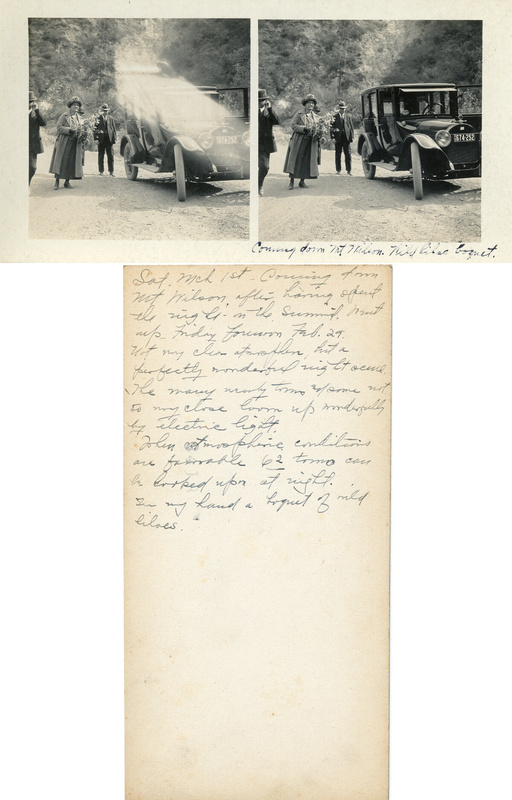 674-252
674-252
Coming down Mt. Wilson. Wild lilac boquet.
Sat. Mch 1st - Coming down
Mt Wilson, after having spent
the night on the Summit. Went
up Friday forenoon Feb. 29.
Not very clear atmosphere, but a
perfectly wonderful night scene.
The many nearby towns & some not
so very close loom up wonderfully
by electric light.
When atmospheric conditions
are favorable 62 towns can
be looked upon at night.
In my hand a boquet of wild
lilacs.